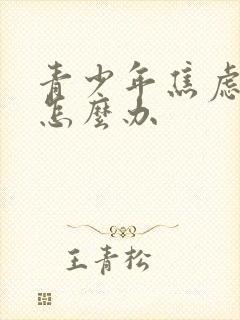 青少年焦虑
怎麼办
王青松